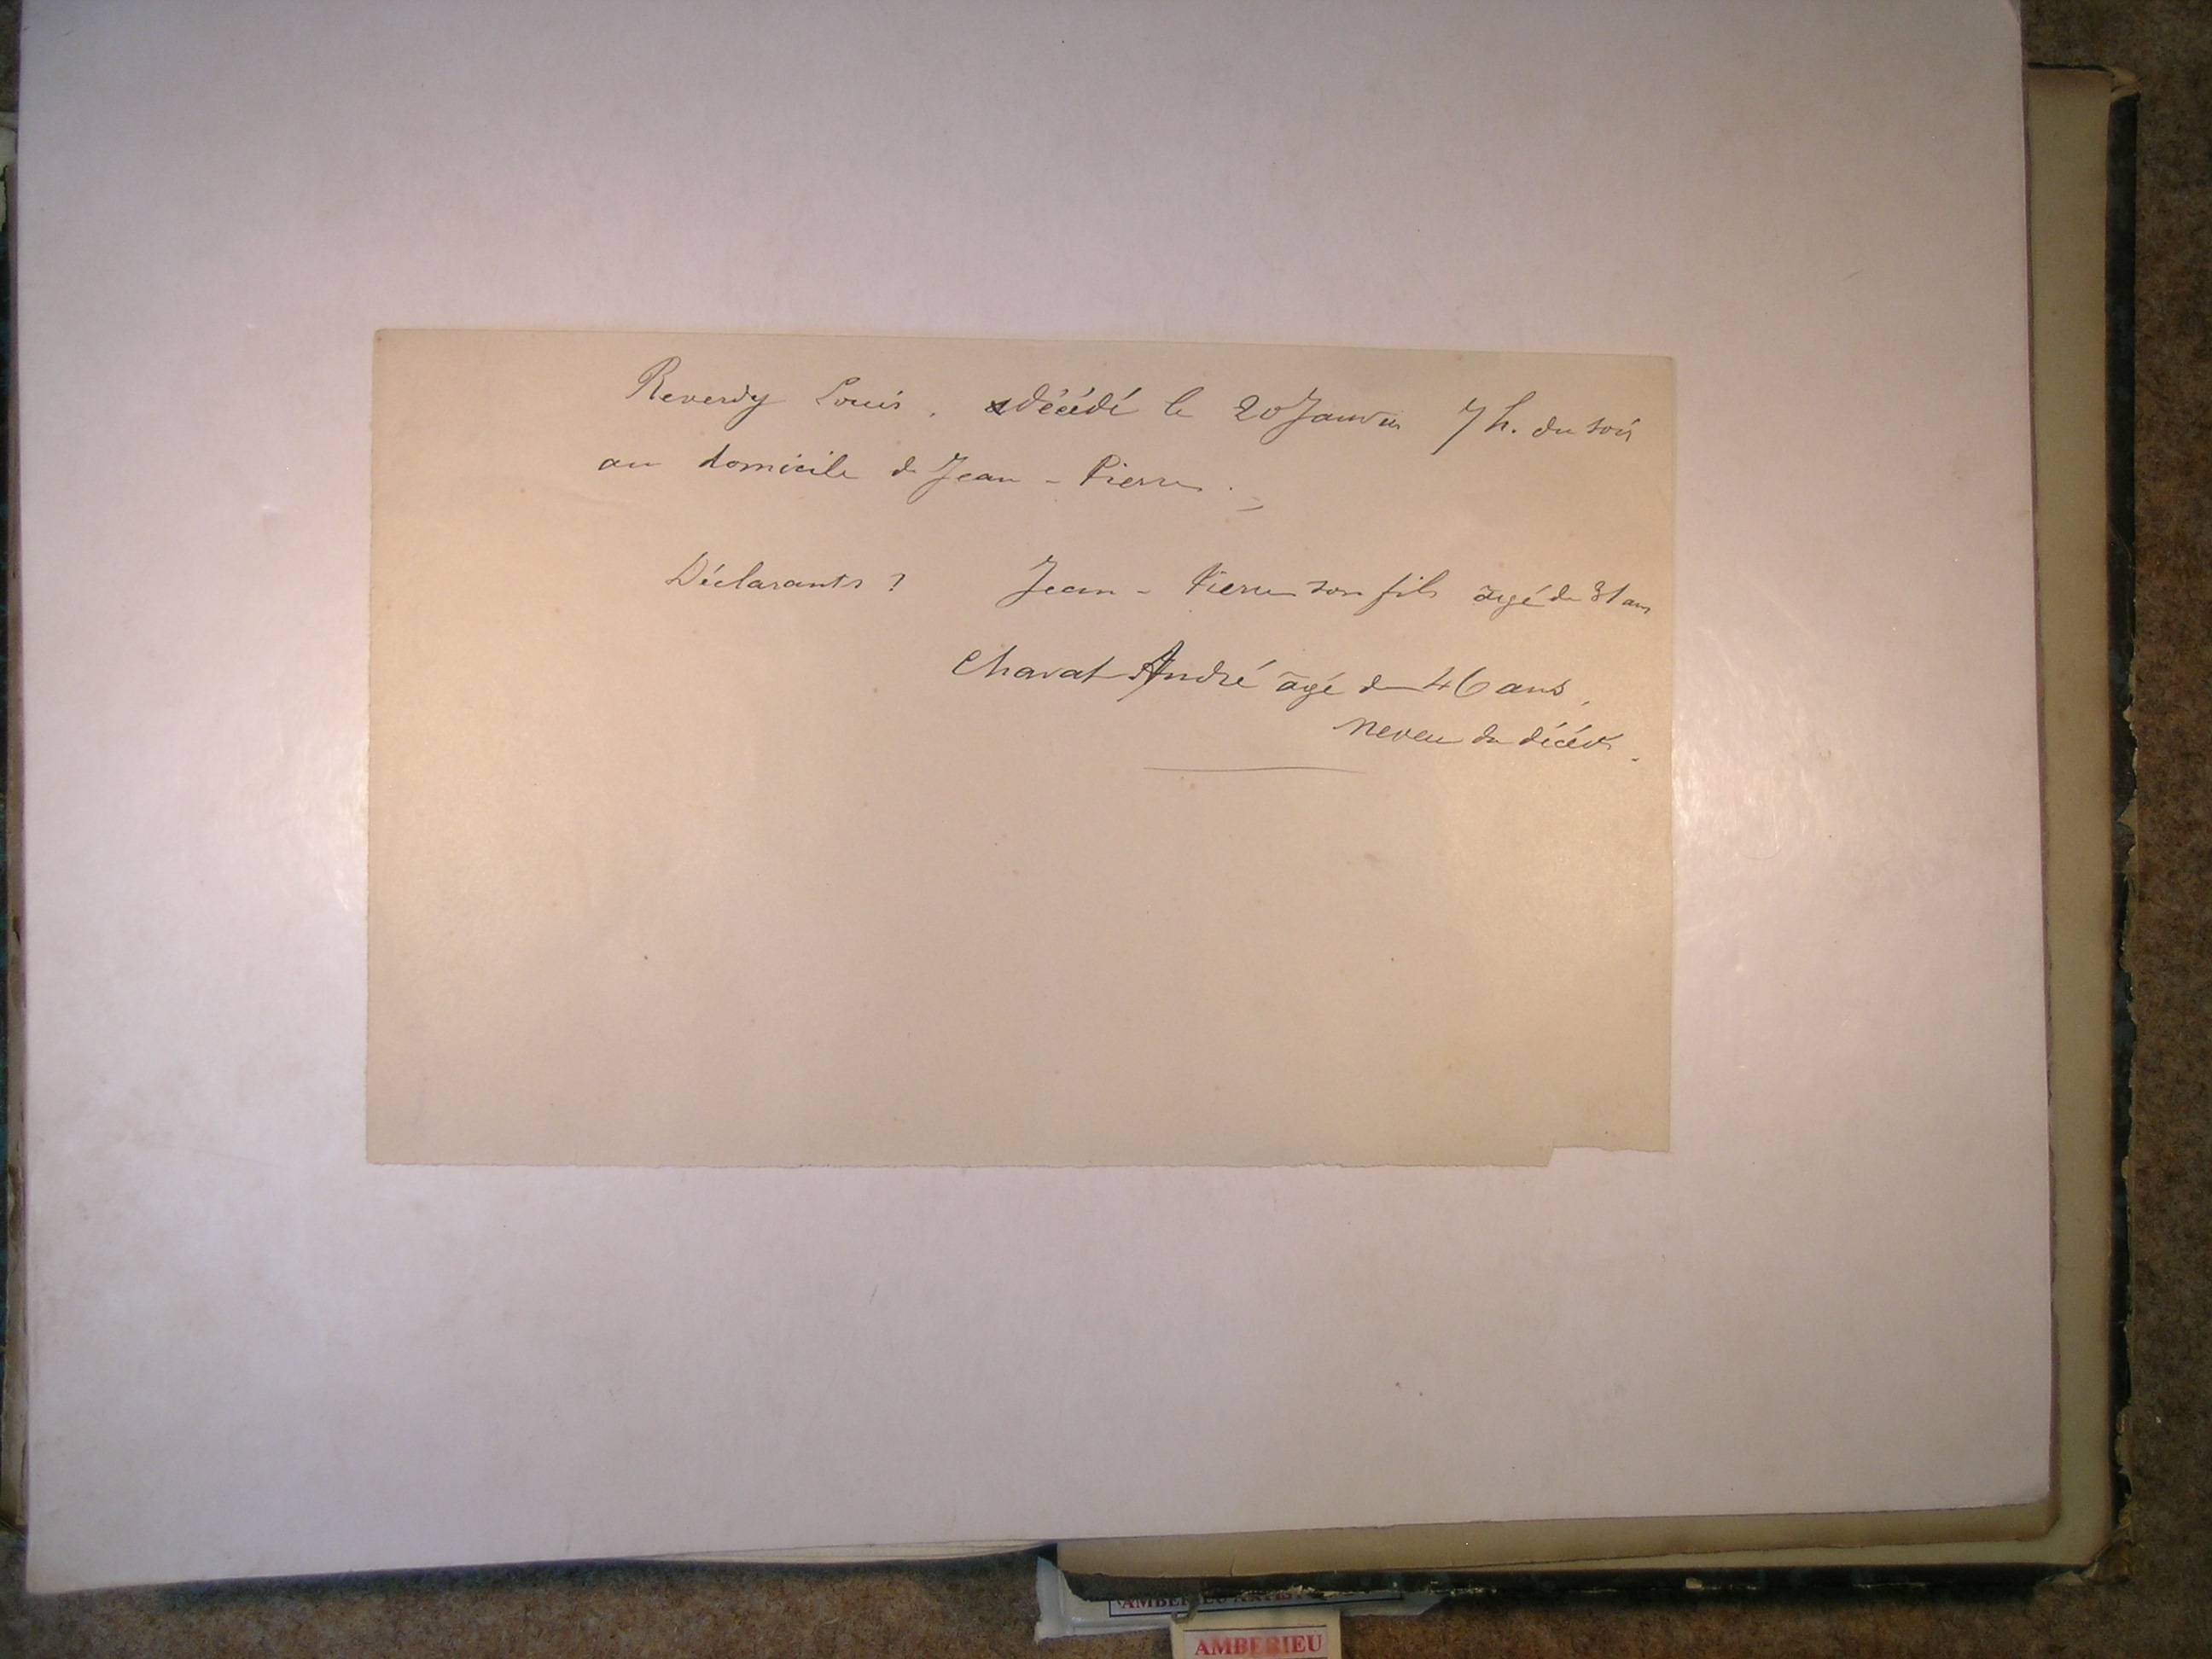 Reverdy Louis. décédé le 20 Janvier 7 h. du soir
au domicile de Jean-Pierre.
Déclarants ? Jean-Pierre son fils âgé de 31 ans
Chavat André âgé de 46 ans,
neveu du décédé.
AMBERIEU